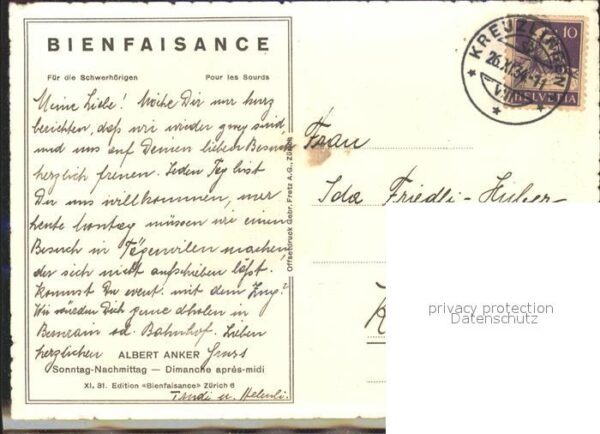 BIENFAISANCE
Für die Schwerhörigen Pour les Sourds
Meine Liebe! Möchte Dir nur kurz
berichten, daß wir wieder zweg sind,
und uns auf Deinen lieben Besuch
herzlich freuen. Jeden Tag bist
Du uns willkommen, nur
heute Montag müssen wir einen
Besuch in Tägerwilen machen,
der sich nicht aufschieben läßt.
Kommst Du event. mit dem Zug?
Wir würden Dich gerne abholen in
Bernrain od. Bahnhof. Lieben
herzlichen Gruss
ALBERT ANKER
Sonntag-Nachmittag — Dimanche après-midi
XI. 31. Edition «Bienfaisance» Zürich 6
Trudi u. Helmli.
Offsetdruck Gebr. Fretz A.G., Zürich
KREUZLINGEN
26.XI.34
10
HELVETIA
Frau
Ida Friedli-Huber
K
privacy protection
Datenschutz